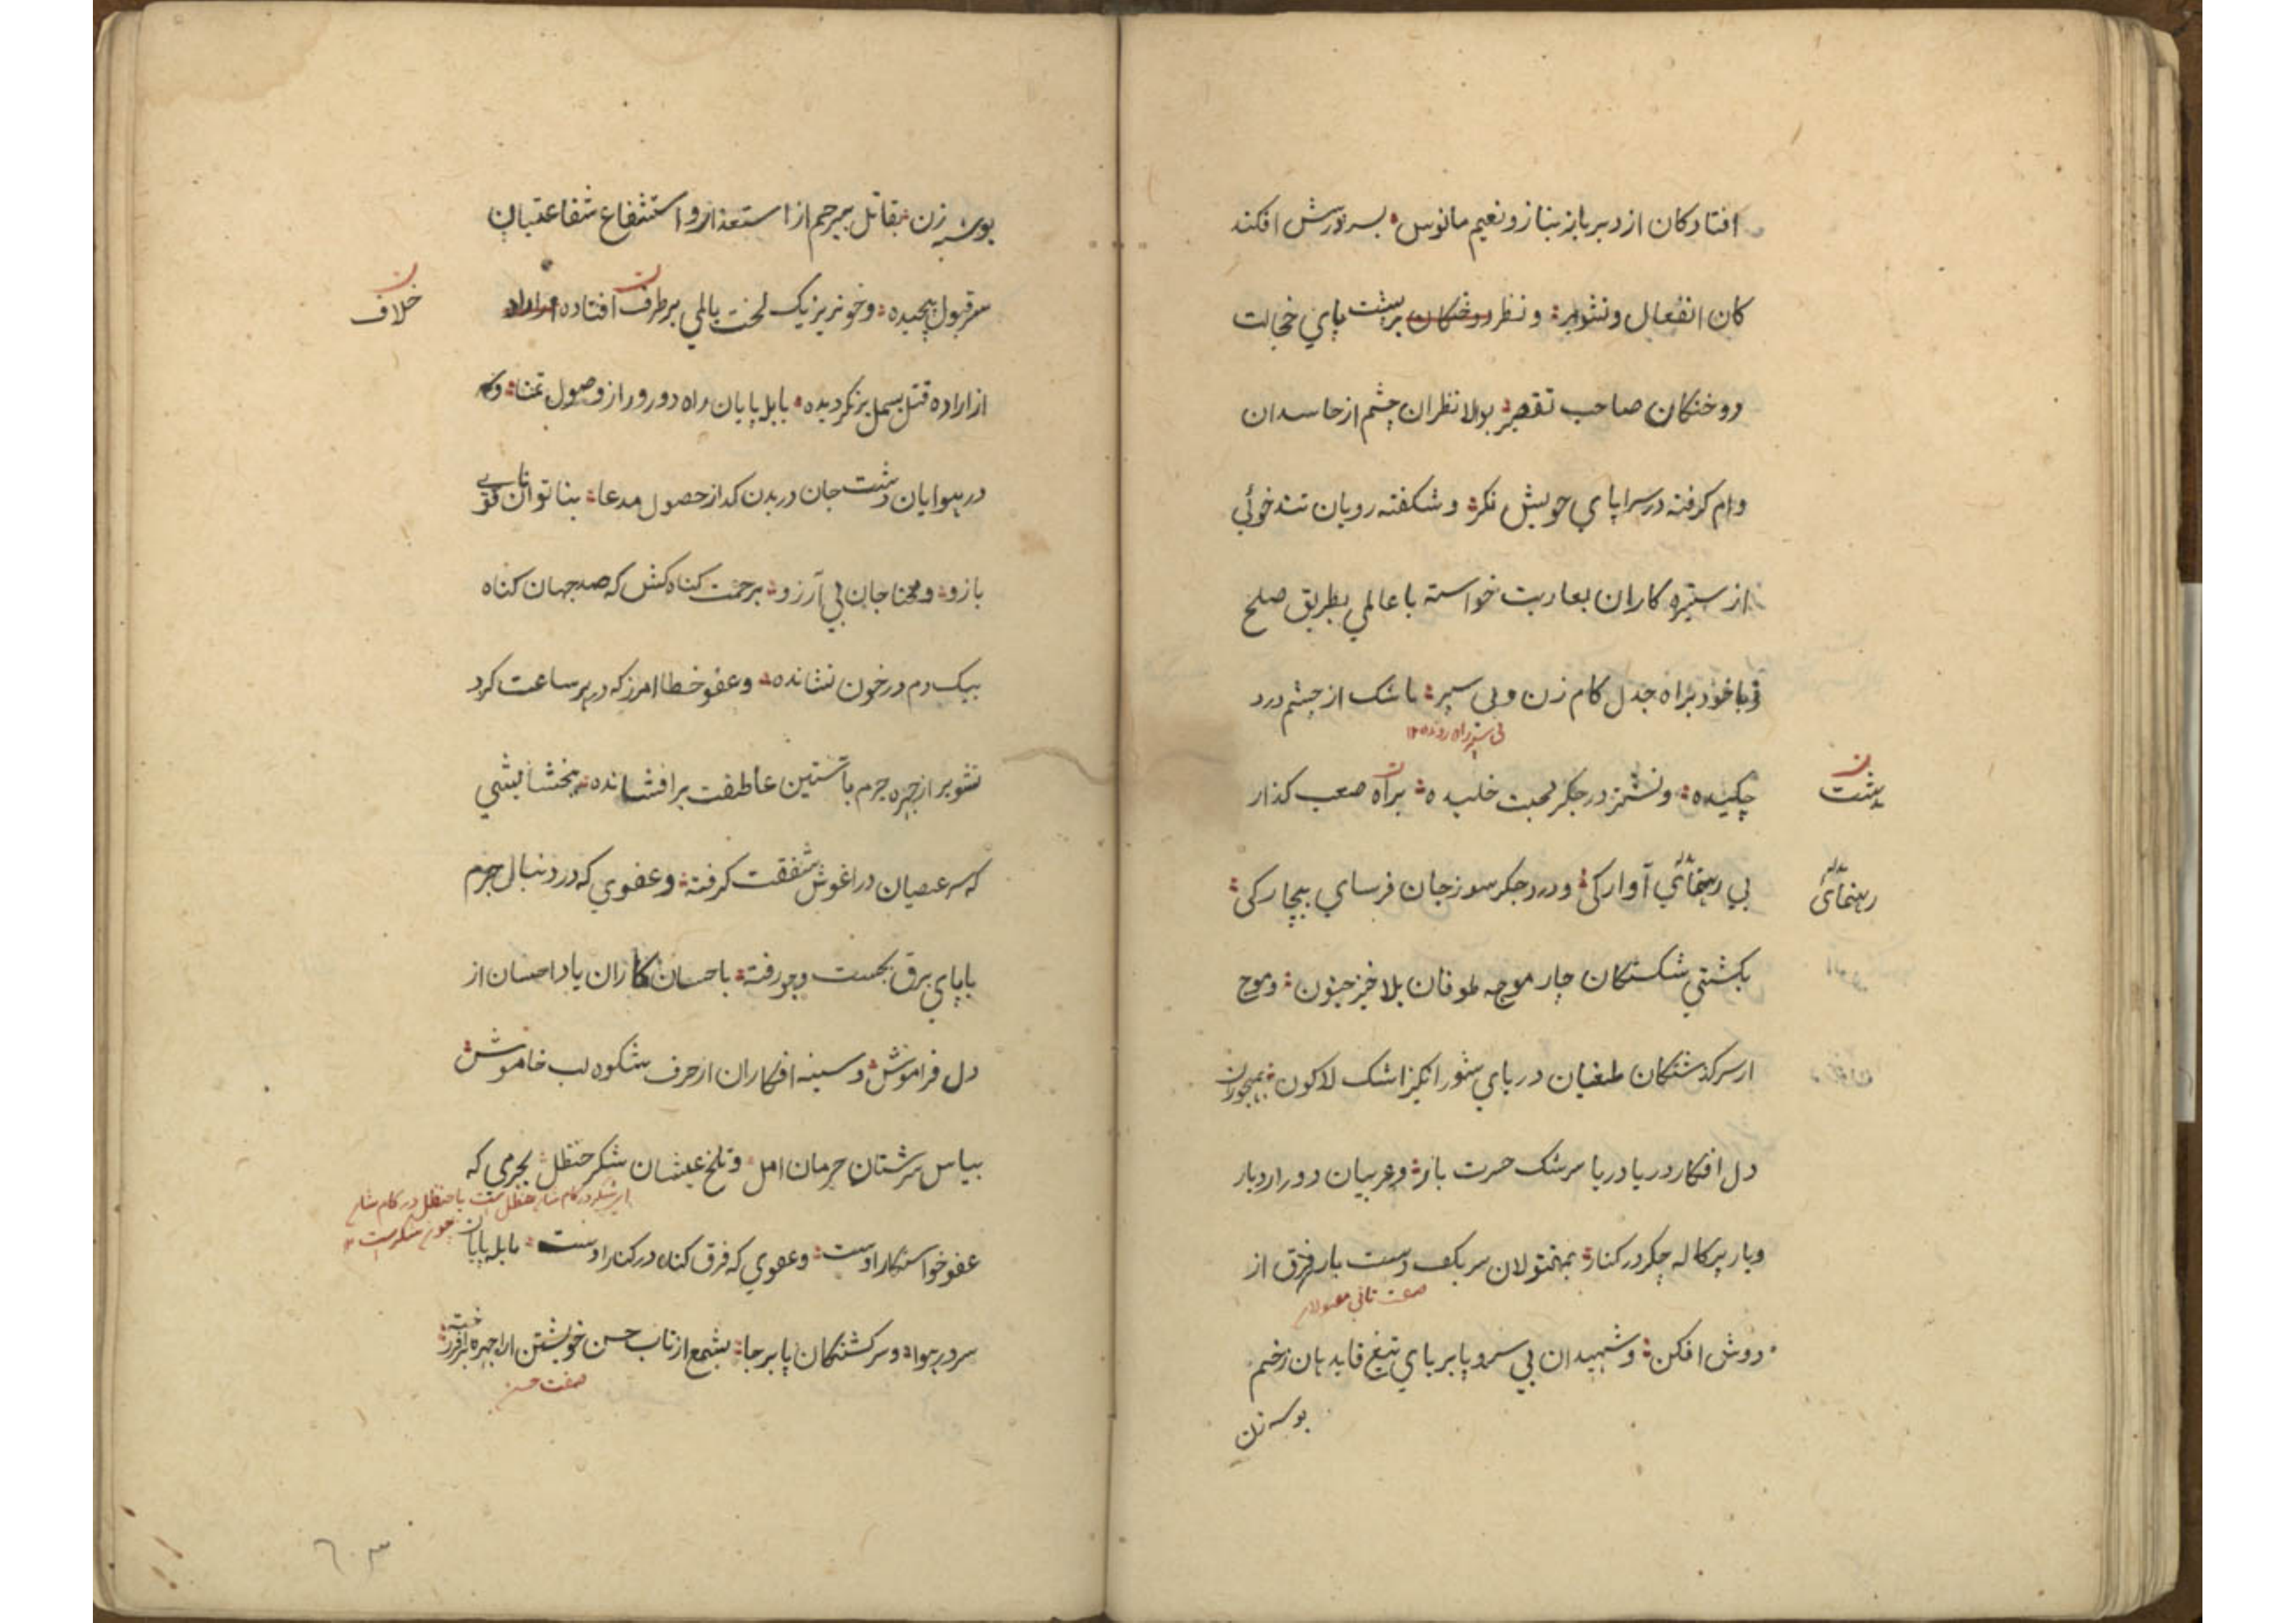 افتادکان از دیر باز بناز و نعیم مانوس بسر ورش افکند
کان انفعال و تشویر و نظر دوختکان بر پشت پای خجالت
دوختکان صاحب تقصیر بوالا نظران چشم از حاسدان
وام کرفته در سراپای خویش نکر و شکفته رویان تندخوئی
از ستیزه کاران بعاریت خواسته با عالمی بطریق صلح
و با خود براه جدل کام زن و پی سپر باشک از چشم درد
پی سپر راه رونده ۱۲
چکیده و نشتر در جکر محبت خلیده براه صعب کذار
دشت
بی رهنمائی آوارکی و درد جکرسوز جان فرسای بیچارکی
رهنمائی
بکشتی شکستکان چار موجه طوفان بلاخیز جنون و موج
از سر کذشتکان طغیان دریای شور انکیز اشک لاله کون بمهجوران
دل افکار دریا دریا سرشک حسرت بار و غریبان دور از دیار
و یار پرکاله جکر در کنار بمقتولان سر بکف دست بار فرق از
صفت ثانی مقتولان
دوش افکن و شهیدان بی سر و پا بر پای تیغ قاتل دهان زخم
بوسه زن
بوسه زن بقاتل بیرحم از استعذار و استشفاع شفاعتیان
سر قبول پیچیده و خونریز یک لخت بالمی برطرف افتاده
خلاف
از اراده قتل بسمل برنکردیده بابله پایان راه دور و دراز وصول تمنا و
در هوایان دشت جان در بدن کداز حصول مدعا بناتوانان قوی
بازو و محتاجان بی آرزو برحمت کناه کش که صد جهان کناه
بیک دم در خون نشانده و عفو خطا امرز که در هر ساعت کرد
تشویر از چهره جرم بآستین عاطفت برافشانده ببخشایشی
که سر عصیان در اغوش شفقت کرفته و عفوی که در دنبال جرم
باپای برق بجست و جو رفته باحسان کاران یاد احسان از
دل فراموش و سینه افکاران از حرف شکوه لب خاموش
بیاس سرشتان حرمان امل و تلخ عیشان شکر حنظل بجرمی که
ای شکر در کام شان حنظل ست یا حنظل در کام شان
چون شکر ست ۱۲
عفو خواستکار اوست و عفوی که فرق کناه در کنار اوست بابله پایان
سر در هوا و سرکشتکان پا برجا بشمع از تاب حسن خویشتن ارا چهره برافروخته
صفت حسن
۶۰۳